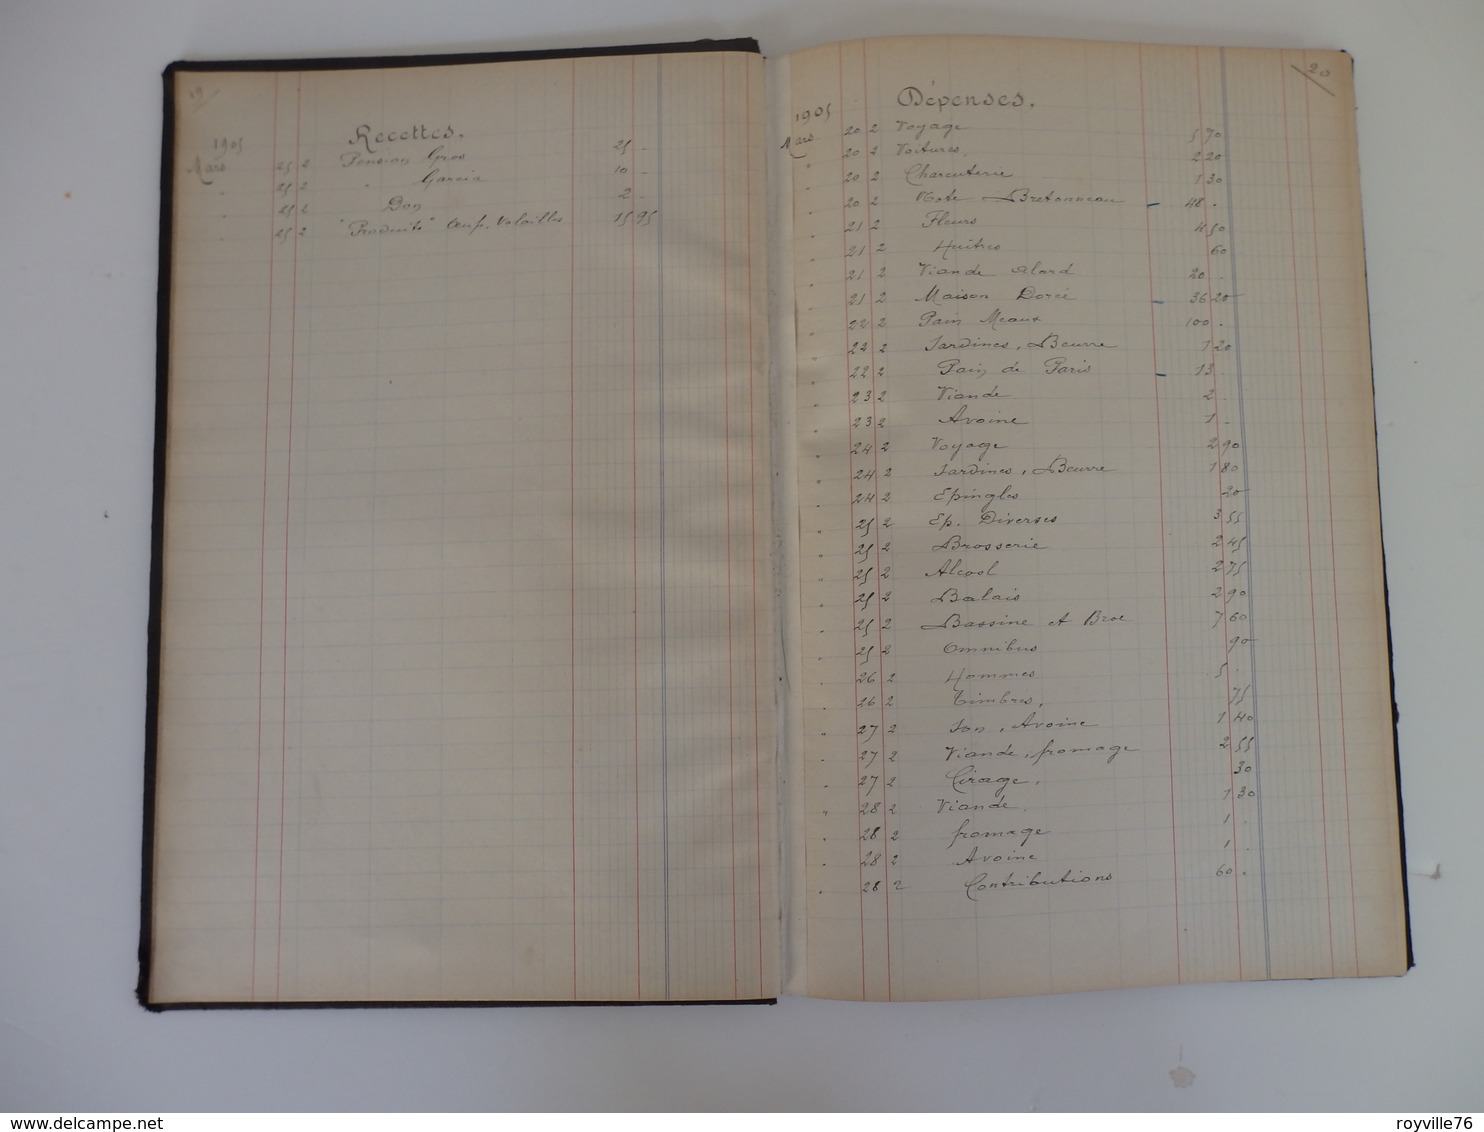 19
1905
Recettes.
Mars 25 2 Pension Gros 25 -
" 25 2 " Garcia 10 -
" 25 2 Don 2 -
" 25 2 "Produits" Oeufs. Volailles 15 95
20
1905
Dépenses.
Mars 20 2 Voyage 5 70
" 20 2 Voitures. 2 20
" 20 2 Charcuterie 1 30
" 20 2 Note Bretonneau - 48 .
" 21 2 Fleurs 4 50
" 21 2 Huitres 60
" 21 2 Viande Alard 20 .
" 21 2 Maison Dorée - 36 20
" 22 2 Pain Meaux 100 .
" 22 2 Sardines, Beurre 1 20
" 22 2 Pain de Paris - 13 .
" 23 2 Viande 2 .
" 23 2 Avoine 1 -
" 24 2 Voyage 2 90
" 24 2 Sardines, Beurre 1 80
" 24 2 Epingles 20
" 25 2 Ep. Diverses 3 55
" 25 2 Brosserie 2 45
" 25 2 Alcool 2 75
" 25 2 Balais 2 90
" 25 2 Bassine et Broc 7 60
" 25 2 Omnibus 90
" 26 2 Hommes 5 .
" 26 2 Timbres, 75
" 27 2 Son, Avoine 1 40
" 27 2 Viande, fromage 2 55
" 27 2 Cirage, 30
" 28 2 Viande. 1 30
" 28 2 fromage 1 .
" 28 2 Avoine 1 .
" 28 2 Contributions 60 .
delcampe.net
royville76